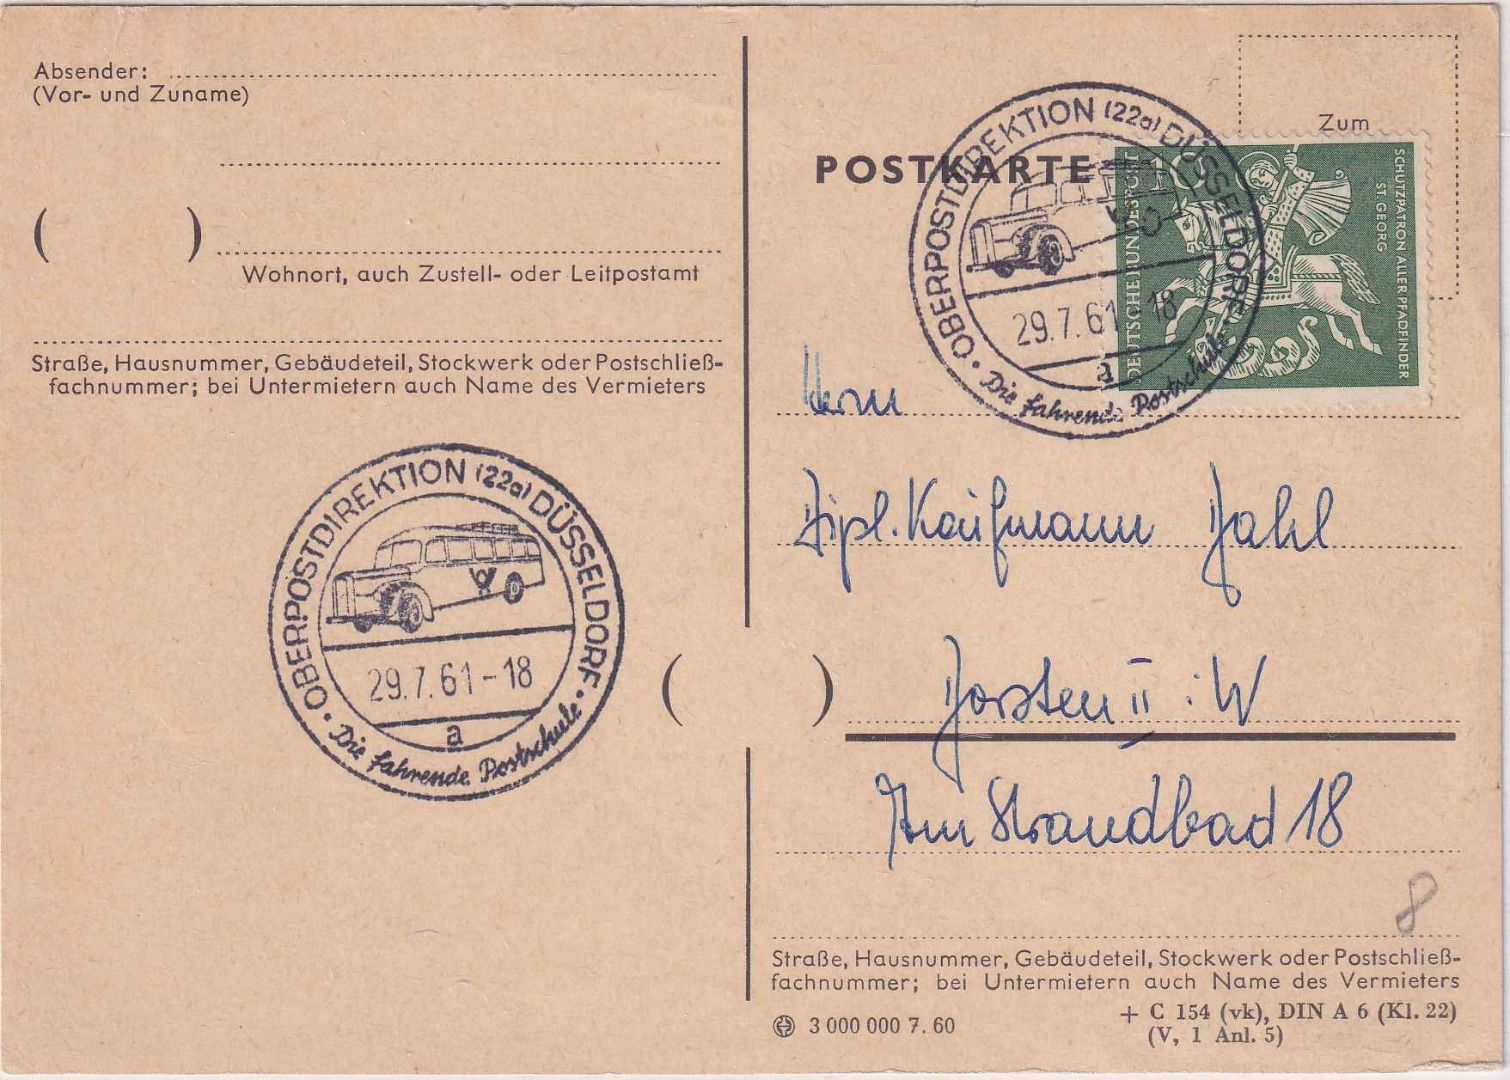 Absender:
(Vor- und Zuname)
( )
Wohnort, auch Zustell- oder Leitpostamt
Straße, Hausnummer, Gebäudeteil, Stockwerk oder Postschließ-
fachnummer; bei Untermietern auch Name des Vermieters
OBERPOSTDIREKTION (22a) DÜSSELDORF
29.7.61-18
a
Die fahrende Postschule
POSTKARTE
Zum
OBERPOSTDIREKTION (22a) DÜSSELDORF
29.7.61-18
a
Die fahrende Postschule
DEUTSCHE BUNDESPOST
10
SCHUTZPATRON ALLER PFADFINDER
ST GEORG
Herrn
Dipl. Kaufmann Dahl
( )
Dorsten II i. W
Am Strandbad 18
8
Straße, Hausnummer, Gebäudeteil, Stockwerk oder Postschließ-
fachnummer; bei Untermietern auch Name des Vermieters
3 000 000 7. 60
+ C 154 (vk), DIN A 6 (Kl. 22)
(V, 1 Anl. 5)